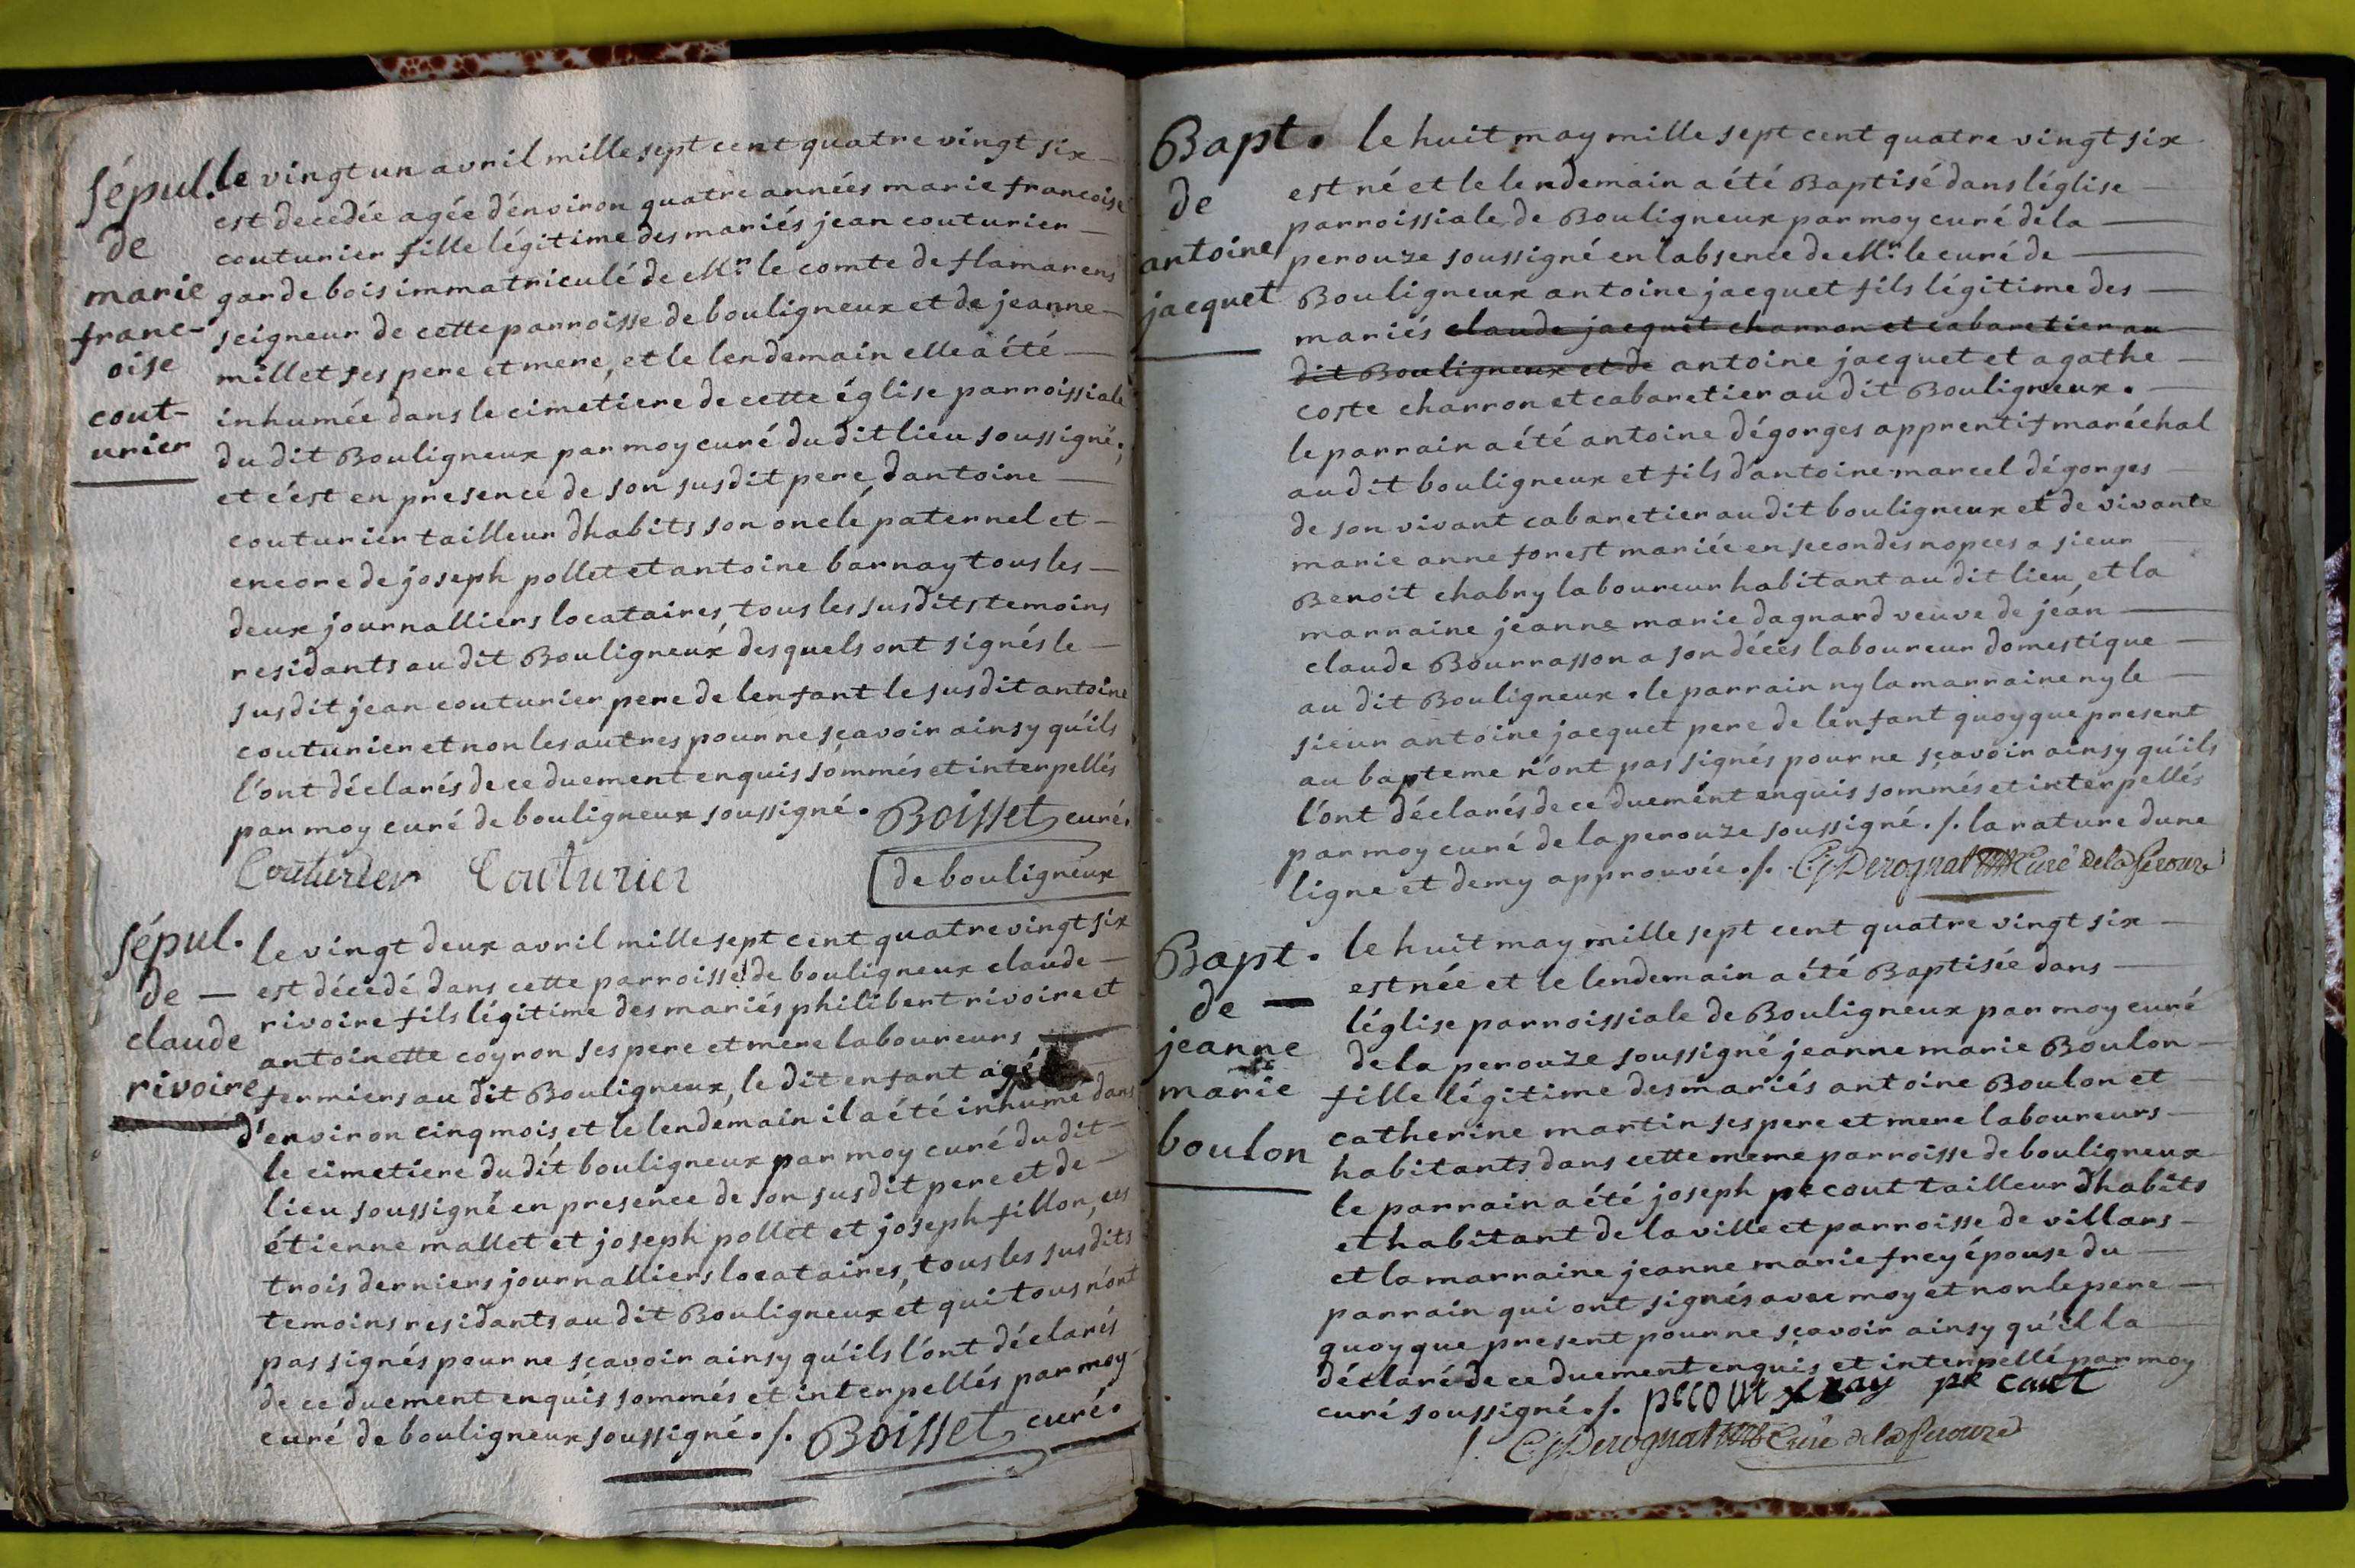 Sépul.
de
marie
franc-
oise
cout-
urier
le vingt un avril mille sept cent quatre vingt six
est decedée agée d'environ quatre années marie francoise
couturier fille légitime des mariés jean couturier
garde bois immatriculé de Mr. le comte de flamarens
seigneur de cette parroisse de bouligneux et de jeanne
millet ses pere et mere, et le lendemain elle a été
inhumée dans le cimetiere de cette église parroissiale
du dit Bouligneux par moy curé du dit lieu soussigné;
et c'est en presence de son susdit pere, d'antoine
couturier tailleur dhabits son oncle paternel et
encore de joseph pollet et antoine barnay tous les
deux journalliers locataires, tous les susdits temoins
residants au dit Bouligneux desquels ont signés le
susdit jean couturier pere de lenfant le susdit antoine
couturier et non les autres pour ne sçavoir ainsy qu'ils
l'ont déclarés de ce duement enquis sommés et interpellés
par moy curé de bouligneux soussigné. Boisset curé.
Couturier Couturier de bouligneux
Sépul.
de
claude
rivoire
le vingt deux avril mille sept cent quatre vingt six
est décédé dans cette parroisse de bouligneux claude
rivoire fils légitime des mariés philibert rivoire et
antoinette coyron ses pere et mere laboureurs
fermiers au dit Bouligneux, le dit enfant agé
d'environ cinq mois, et le lendemain il a été inhumé dans
le cimetiere du dit bouligneux par moy curé du dit
lieu soussigné en presence de son susdit pere et de
étienne mallet et joseph pollet et joseph fillon, ces
trois derniers journalliers locataires, tous les susdits
temoins residants au dit Bouligneux et qui tous n'ont
pas signés pour ne sçavoir ainsy qu'ils l'ont déclarés
de ce duement enquis sommés et interpellés par moy
curé de bouligneux soussigné./. Boisset curé.
Bapt.
de
antoine
jacquet
le huit may mille sept cent quatre vingt six
est né et le lendemain a été Baptisé dans léglise
parroissiale de Bouligneux par moy curé de la
perouze soussigné en labsence de Mr. le curé de
Bouligneux antoine jacquet fils légitime des
mariés claude jacquet charron et cabaretier au
dit Bouligneux et de antoine jacquet et agathe
coste charron et cabaretier au dit Bouligneux.
le parrain a été antoine dégorges apprentif maréchal
au dit bouligneux et fils d'antoine marcel dégorges
de son vivant cabaretier au dit bouligneux et de vivante
marie anne forest mariée en secondes nopces a sieur
Benoit chabry laboureur habitant au dit lieu, et la
marraine jeanne marie dagnard veuve de jean
claude Bourrasson a son décès laboureur domestique
au dit Bouligneux. le parrain ny la marraine ny le
sieur antoine jacquet pere de lenfant quoyque present
au bapteme n'ont pas signés pour ne sçavoir ainsy qu'ils
l'ont déclarés de ce duement enquis sommés et interpellés
par moy curé de la perouze soussigné./. la rature dune
ligne et demy approuvée./. Derognat Curé de la Perouze
Bapt.
de
jeanne
marie
boulon
le huit may mille sept cent quatre vingt six
est née et le lendemain a été Baptisée dans
léglise parroissiale de Bouligneux par moy curé
de la perouze soussigné jeanne marie Boulon
fille légitime des mariés antoine Boulon et
catherine martin ses pere et mere laboureurs
habitants dans cette meme parroisse de bouligneux
le parrain a été joseph pecout tailleur dhabits
et habitant de la ville et parroisse de villars
et la marraine jeanne marie frey épouse du
parrain qui ont signés avec moy et non le pere
quoyque present pour ne sçavoir ainsy qu'il la
déclaré de ce duement enquis et interpellé par moy
curé soussigné./. pecout pecout
Derognat Curé de la Perouze